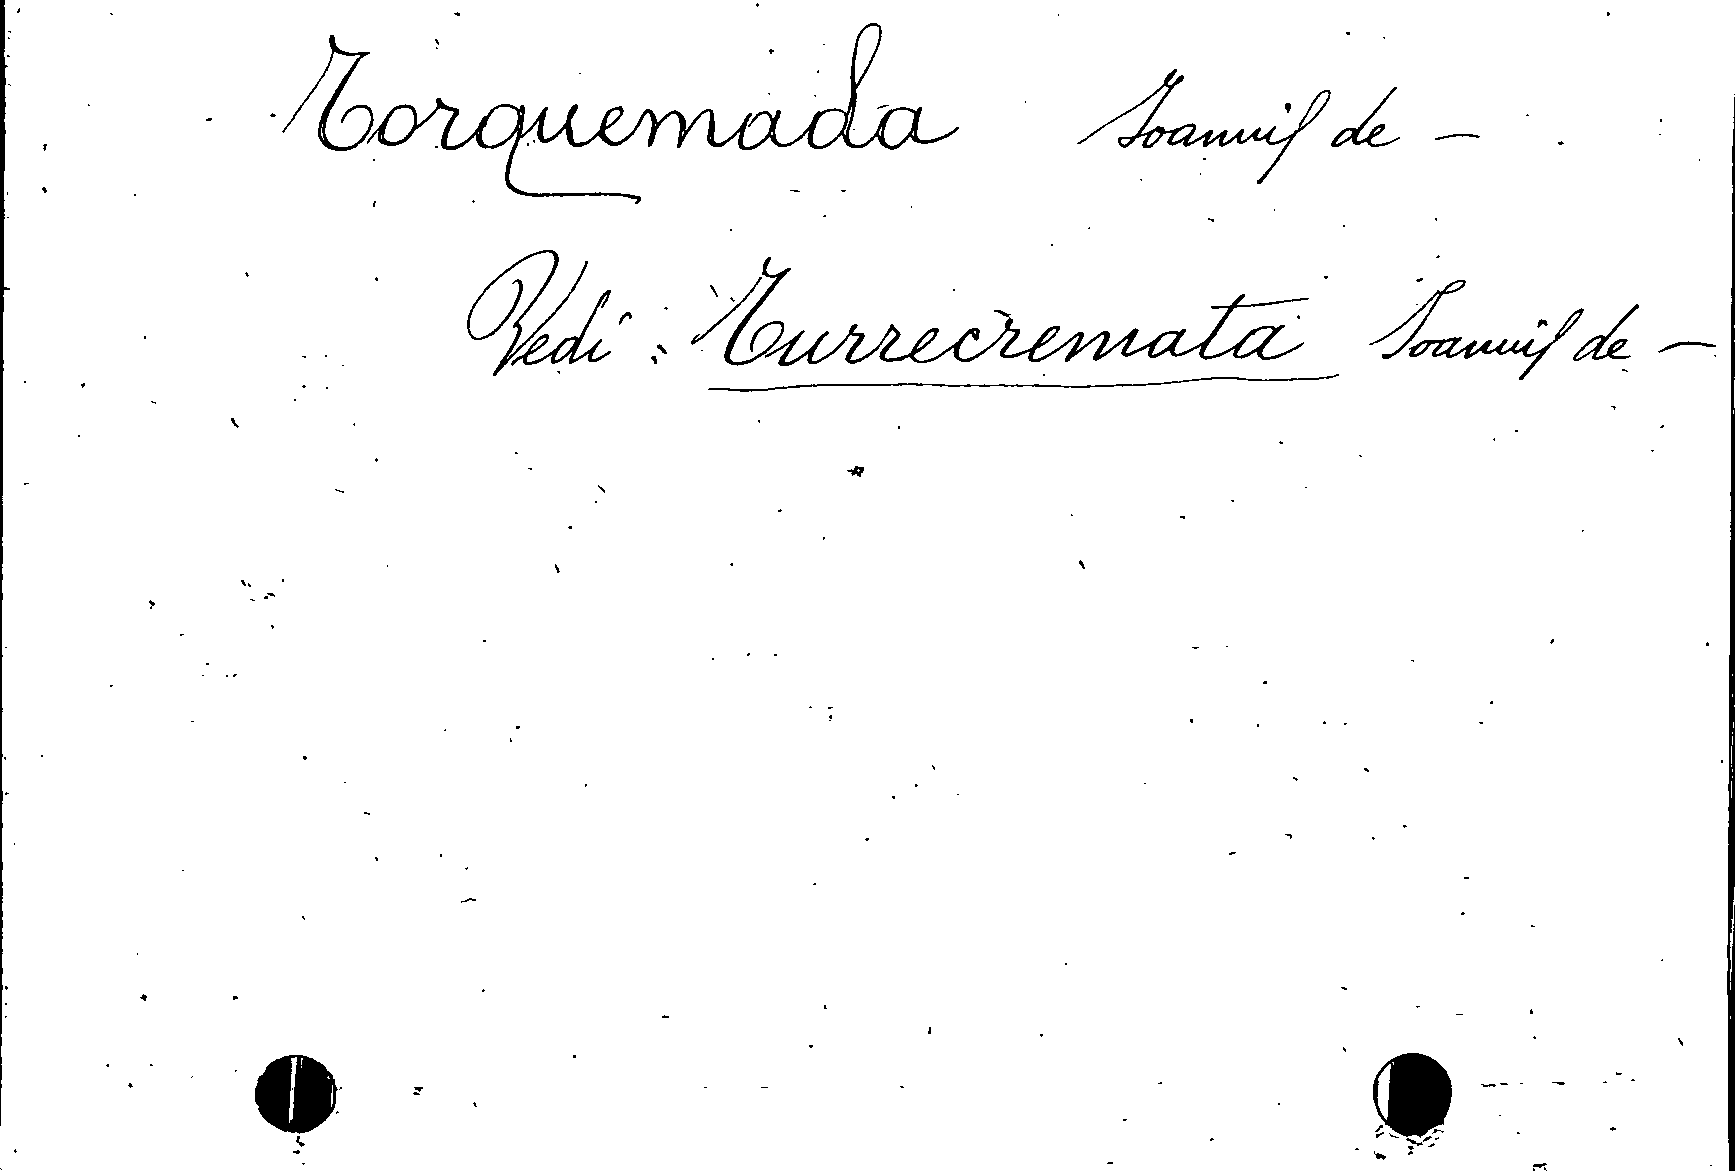 Torquemada Ioannis de —
Vedi: Turrecremata Ioannis de —